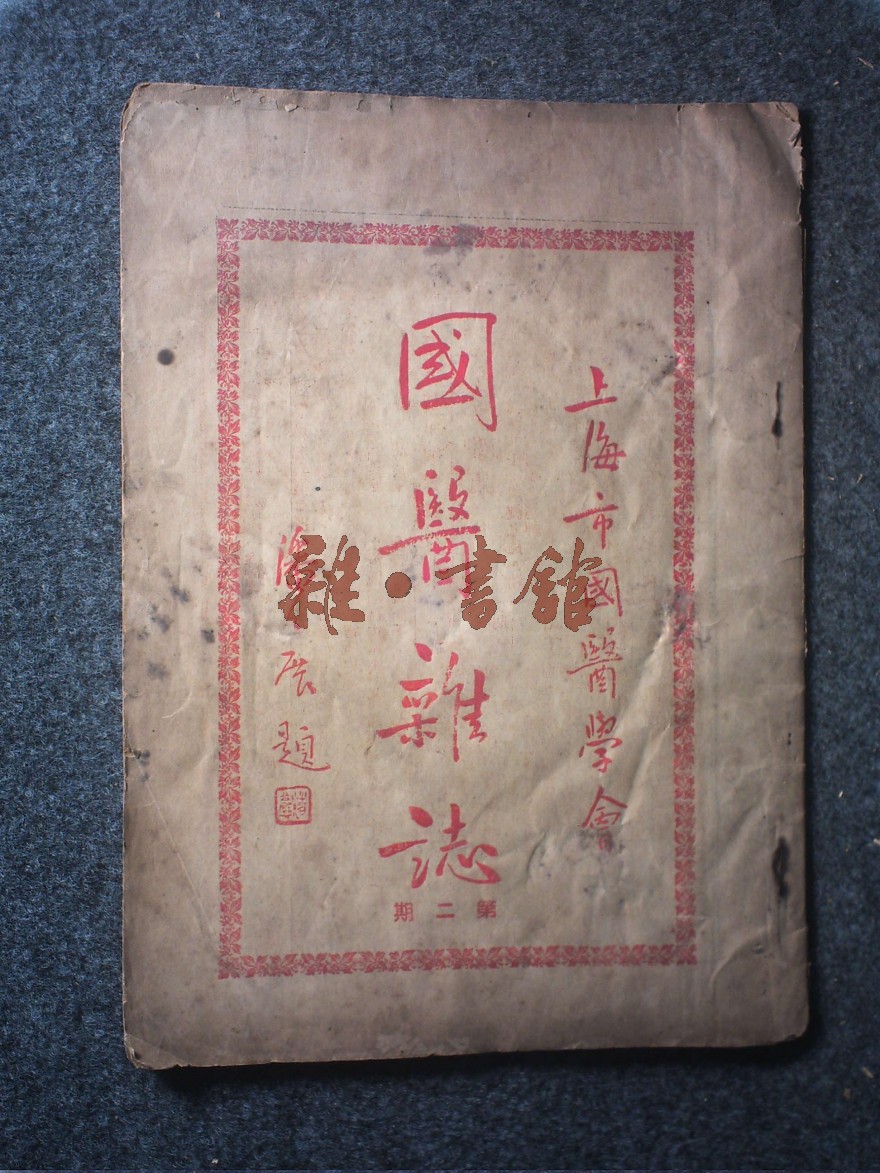 上海市國醫學會
國醫雜誌
展題
第二期
雜·書館